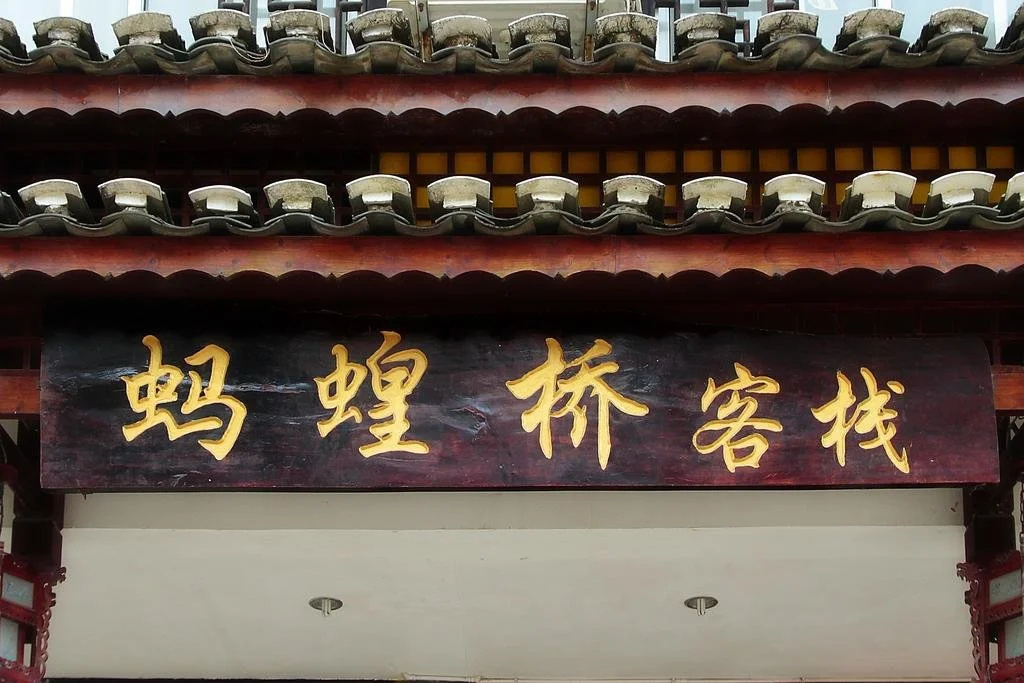 蚂蝗桥客栈